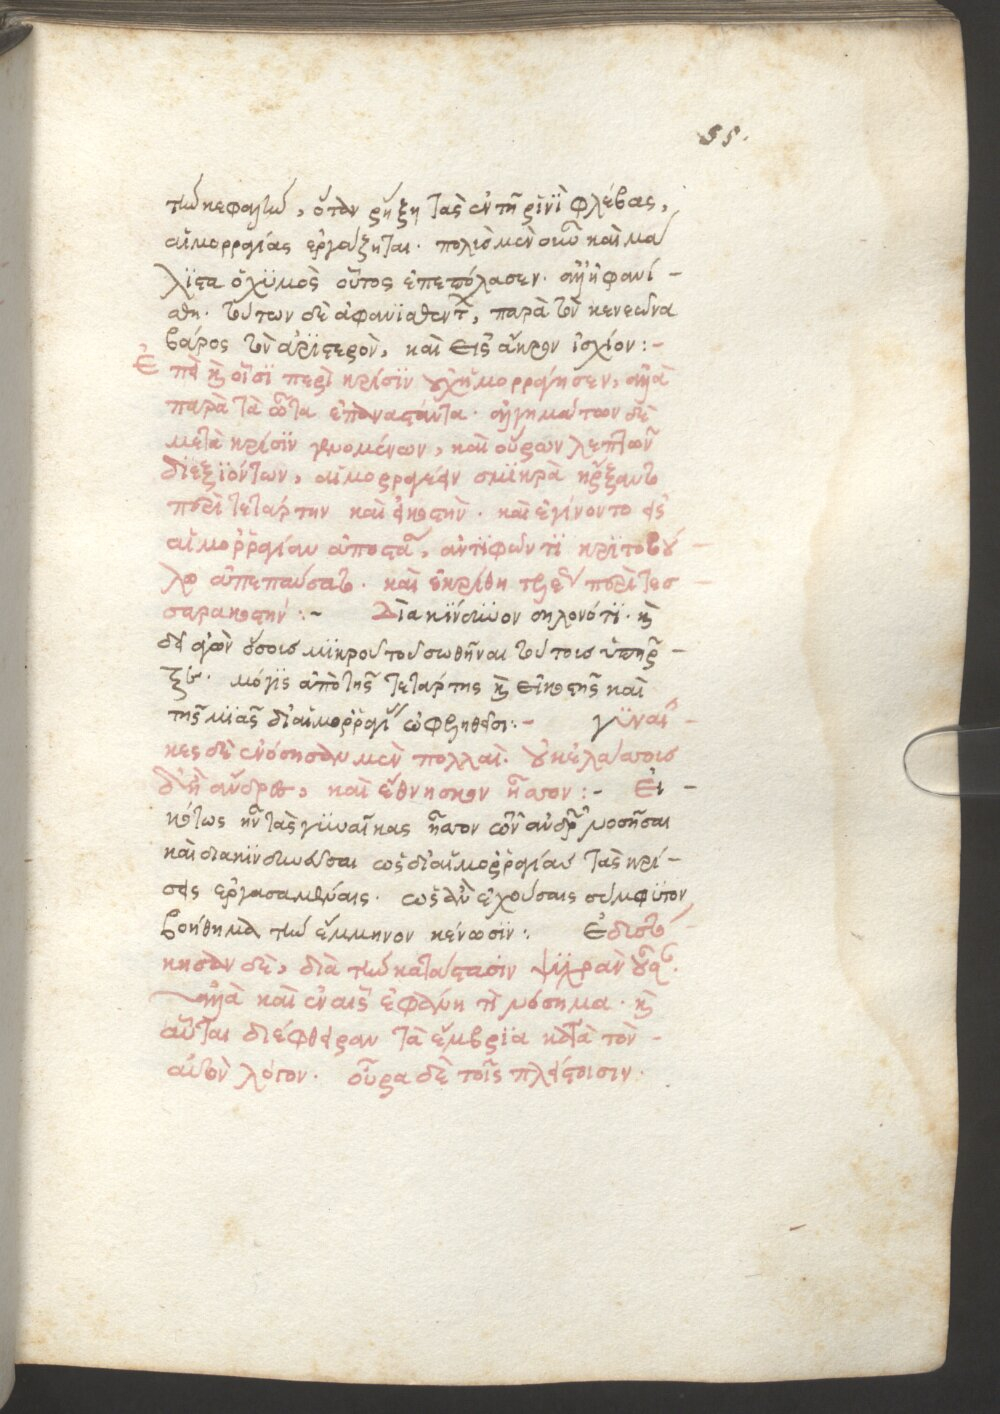 55.
τὴν κεφαλὴν, ὅταν ῥήξῃ τὰς ἐν τῇ ῥινὶ φλέβας,
αἱμορραγίας ἐργάζηται. πολιὸ μὲν οὖν καὶ μά
λϊστα ὁ χϋμὸς οὗτος ἐπεπόλασεν. ἀλλ' ἠφανί -
σθη. τούτων δὲ ἀφανισθέντων, παρὰ τὸν κενεῶνα
βάρος τὸν ἀρϊστερὸν, καὶ εἰς ἄκρον ἰσχίον :-
Ἐπεὶ καὶ οἷσϊ περὶ κρίσϊν οὐχ ἡμορράγησεν, ἀλλὰ
παρὰ τὰ ὦτα ἐπαναστάντα. ἀλγημάτων δὲ
μετὰ κρίσϊν γενομένων, καὶ οὔρων λεπτῶν
διεξϊόντων, αἱμορραγεῖν σμϊκρὰ ἤρξαντο
περὶ τετάρτην καὶ εἰκοστὴν. καὶ ἐγίνοντο εἰς
αἱμορραγίαν ἀποστάσεις, ἀντϊφῶντϊ κρϊτοβού -
λου ἀπεπαύσατο. καὶ ἐκρίθη τελέως περὶ τεσ -
σαρακοστήν :- Δϊακϊνδύνων δηλονότϊ. καὶ
μϊκροῦ τοῦ σωθῆναι τούτοις ὑπῆρ -
ξε. μόγϊς ἀπὸ τῆς τετάρτης καὶ εἰκοστῆς καὶ
τῆς μϊᾶς δι' αἱμορραγίας ὠφεληθεῖσι :- γϋναῖ -
κες δὲ ἐνόσησαν μὲν πολλαὶ. οὐκ ἐλάσσοις
δὲ ἢ ἄνδρες, καὶ ἔθνησκον ἧσσον :- Εἰ -
κότως ἦν τὰς γϋναῖκας ἧσσον τῶν ἀνδρῶν νοσῆσαι
καὶ διακϊνδυνεῦσαι ὡς δι' αἱμορραγίας τὰς κρί -
σεις ἐργασαμέναις. ὡς ἂν ἐχούσαις σύμφϋτον
βοήθημα τὴν ἔμμηνον κένωσϊν :. Ἐδϋστό -
κησαν δὲ, διὰ τὴν κατάστασϊν ψϋχρὰν οὖσαν.
ἀλλὰ καὶ ἐν αἷς ἐφάνη τι νόσημα. καὶ
αὗται διέφθειραν τὰ ἔμβρϋα κατὰ τὸν -
αὐτὸν λόγον. οὖρα δὲ τοῖς πλείστοισιν.